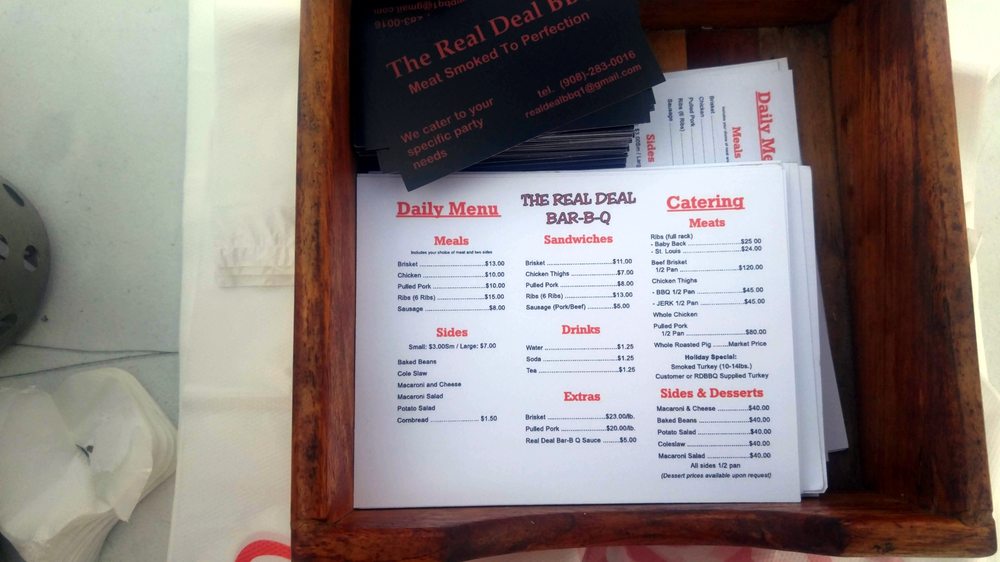 lbbq1@gmail.com
283-0016
The Real Deal BB
Meat Smoked To Perfection
tel. (908)-283-0016
realdealbbq1@gmail.com
We cater to your
specific party
needs
Daily Me
Meals
Brisket
Chicken
Pulled Pork
Ribs (6 Ribs)
Sausage
Sides
$3.00Sm / Large
Daily Menu
Meals
Includes your choice of meat and two sides
Brisket ........................$13.00
Chicken ........................$10.00
Pulled Pork ....................$10.00
Ribs (6 Ribs) ..................$15.00
Sausage ........................$8.00
Sides
Small: $3.00Sm / Large: $7.00
Baked Beans
Cole Slaw
Macaroni and Cheese
Macaroni Salad
Potato Salad
Cornbread ..................... $1.50
THE REAL DEAL
BAR-B-Q
Sandwiches
Brisket ........................$11.00
Chicken Thighs .................$7.00
Pulled Pork ....................$8.00
Ribs (6 Ribs) ..................$13.00
Sausage (Pork/Beef) ............$5.00
Drinks
Water ..........................$1.25
Soda ...........................$1.25
Tea ............................$1.25
Extras
Brisket ........................$23.00/lb.
Pulled Pork ....................$20.00/lb.
Real Deal Bar-B Q Sauce ........$5.00
Catering
Meats
Ribs (full rack)
- Baby Back ....................$25 00
- St. Louis ....................$24.00
Beef Brisket
1/2 Pan ........................$120.00
Chicken Thighs
- BBQ 1/2 Pan ..................$45.00
- JERK 1/2 Pan .................$45.00
Whole Chicken
Pulled Pork
1/2 Pan ........................$80.00
Whole Roasted Pig ........Market Price
Holiday Special:
Smoked Turkey (10-14lbs.)
Customer or RDBBQ Supplied Turkey
Sides & Desserts
Macaroni & Cheese ..............$40.00
Baked Beans ....................$40.00
Potato Salad ...................$40.00
Coleslaw .......................$40.00
Macaroni Salad .................$40.00
All sides 1/2 pan
(Dessert prices available upon request)